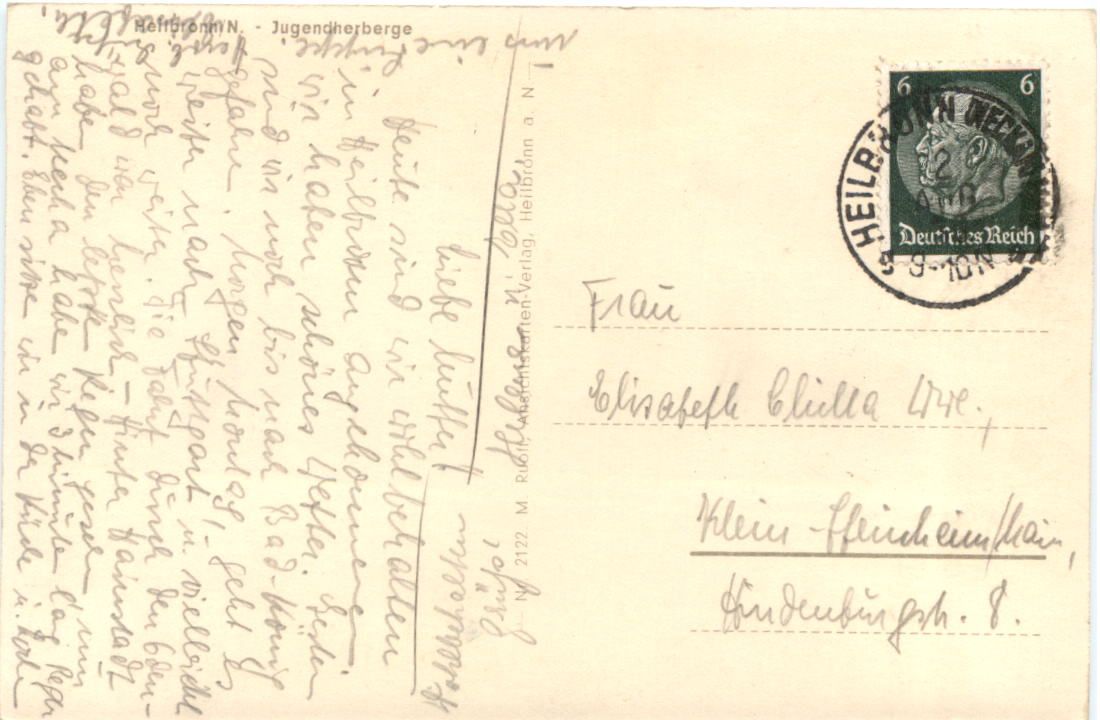 Heilbronn/N. - Jugendherberge
Liebe Mutter!
Heute sind wir wohlbehalten
in Heilbronn angekommen
wir haben schönes Wetter. Gestern
sind wir noch bis nach Bad-König
gefahren. Morgen Montag geht es
weiter nach Stuttgart u. vielleicht
noch weiter. Die Fahrt durch den Oden-
wald war herrlich - Hinter Hainstadt
haben den letzten Regen gesehen
am Neckar habe wir 3 Minuten lang Regen
gehabt. Eben sitzen wir in der Küche u. kochen
uns eine Suppe.
Grüße,
N 2122 M Rubin, Ansichtskarten-Verlag, Heilbronn a. N
6 6
Deutsches Reich
HEILBRONN (NECKAR)
2
9-10 N
Frau
Elisabeth Wwe.,
Klein-Steinheim/Main,
Hindenburgstr. 8.